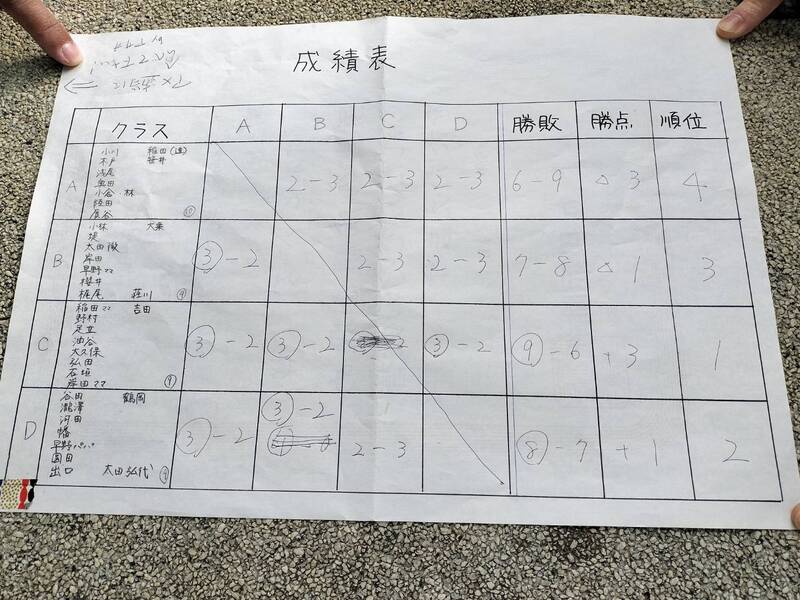 成績表
クラス A B C D 勝敗 勝点 順位
A
小川 稲田(達)
木戸 笹井
浅尾
奥田
小谷 林
陸田
屋谷
⑩
2-3 2-3 2-3 6-9 △3 4
B
小林 大乗
堤
太田徹
岸田
早野ママ
櫻井
梶尾 荘川 ⑨
③-2 2-3 2-3 7-8 △1 3
C
稲田ママ 吉田
野村
足立
池谷
大久保
弘田
石垣
岸田ママ ⑨
③-2 ③-2 ③-2 ⑨-6 +3 1
D
谷田 鶴岡
瀧澤
河田
幡
早野パパ
園田
出口 太田弘代 ⑨
③-2 ③-2 2-3 ⑧-7 +1 2